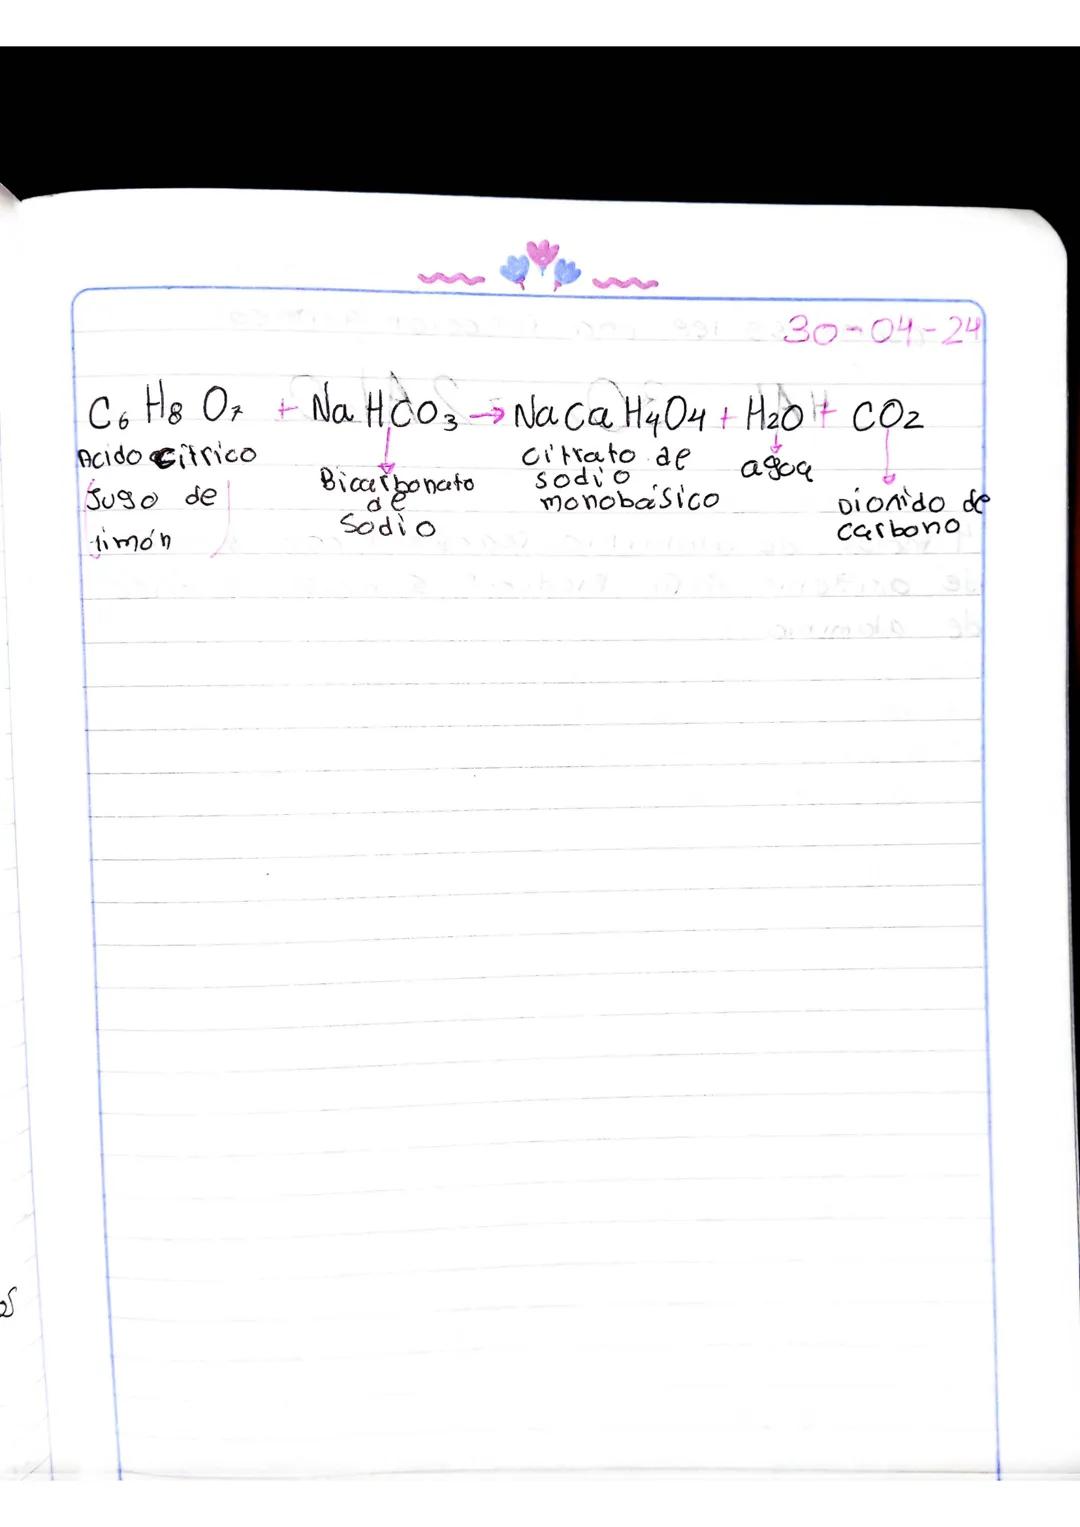 30-04-24
C6 H8 O7 + NaHCO3 → NaCa H4O4 + H2O + CO2
Acido cítrico
Jugo de
limón
Bicarbonato
de
Sodio
citrato de
sodio
monobásico
agoa
Dionido de
carbono